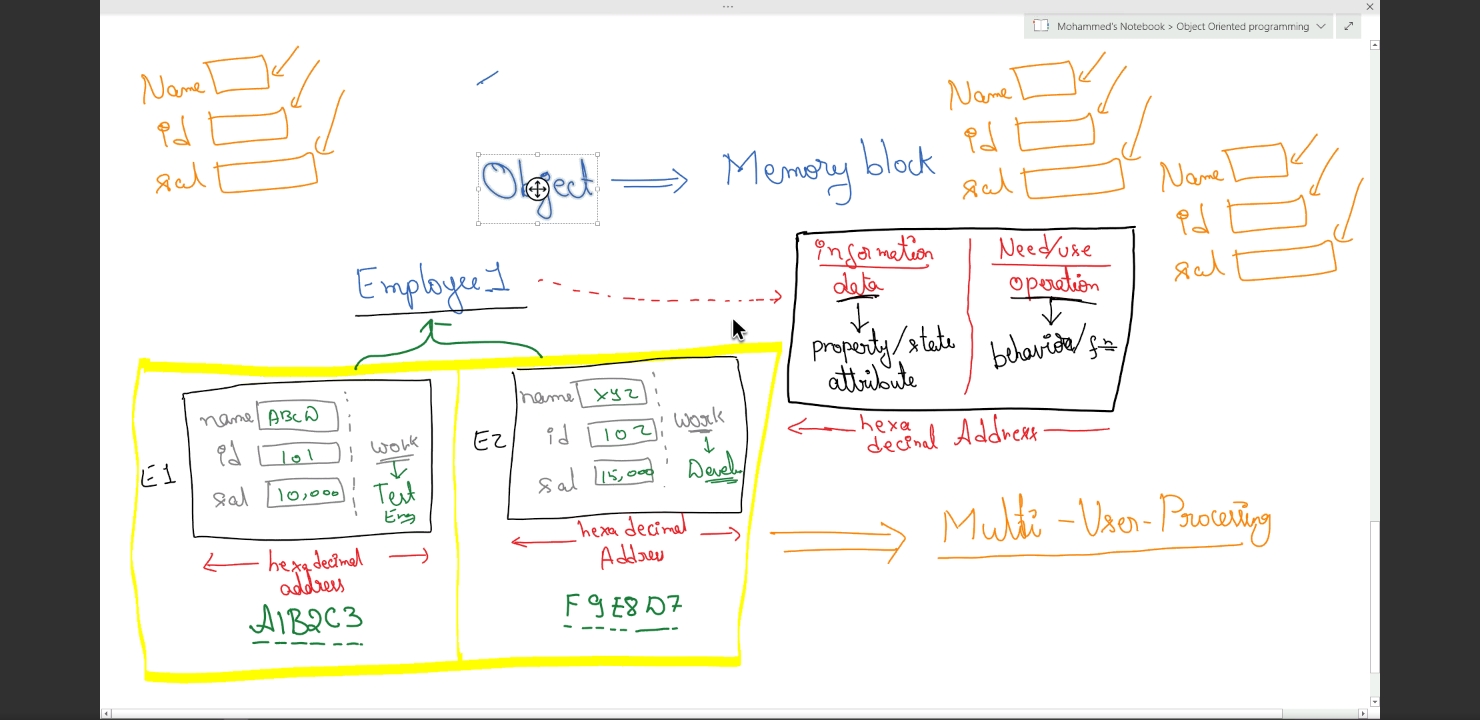 Mohammed's Notebook > Object Oriented programming
Name
id
sal
Object ⟹ Memory block
Name
id
sal
Name
id
sal
Employee1
information
data
property/state
attribute
Need/use
operation
behavior/fn
hexa
decimal Address
E1
name ABCD
id 101
sal 10,000
work
Test
Eng
hexadecimal
address
A1B2C3
E2
name xyz
id 102
sal 15,000
work
Devel
hexa decimal
Address
F9E8D7
Multi-User-Processing